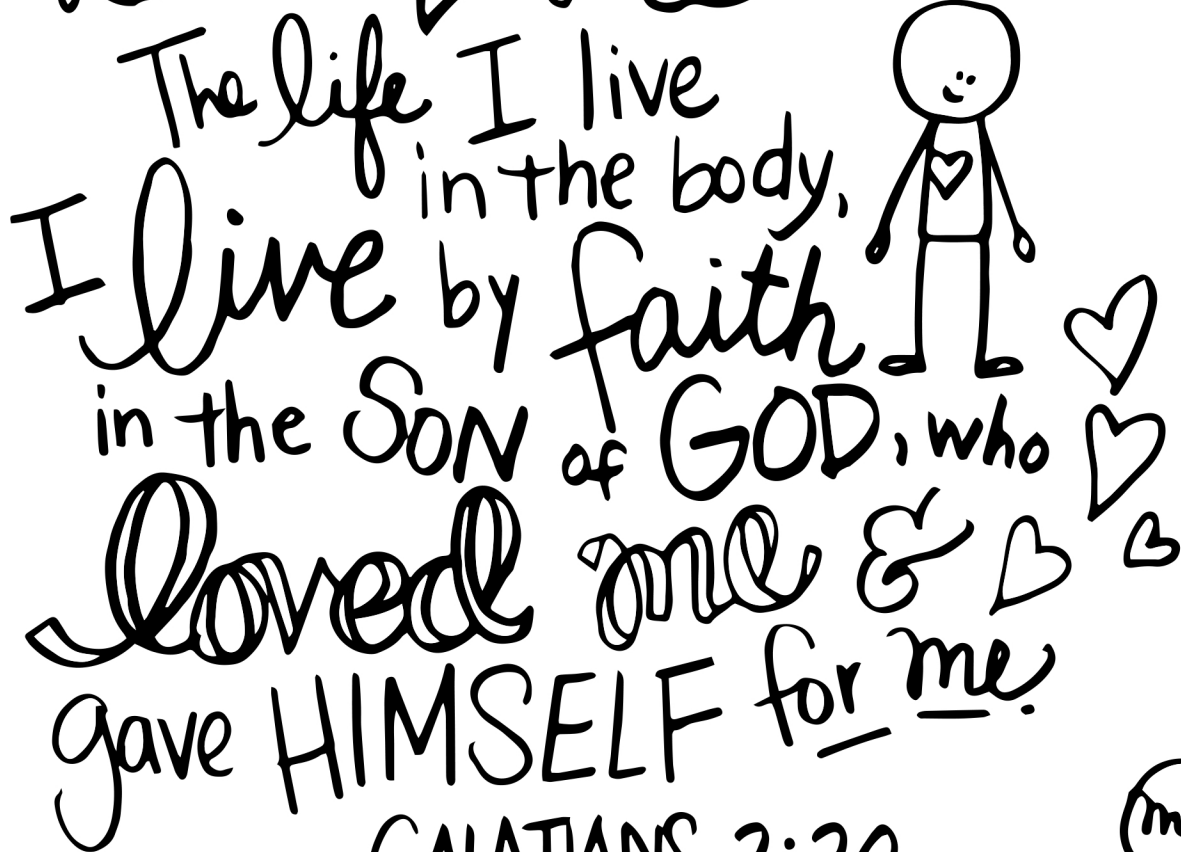 The life I live
in the body,
I live by faith
in the SON of GOD, who
loved me &
gave HIMSELF for me.
GALATIANS 2:20